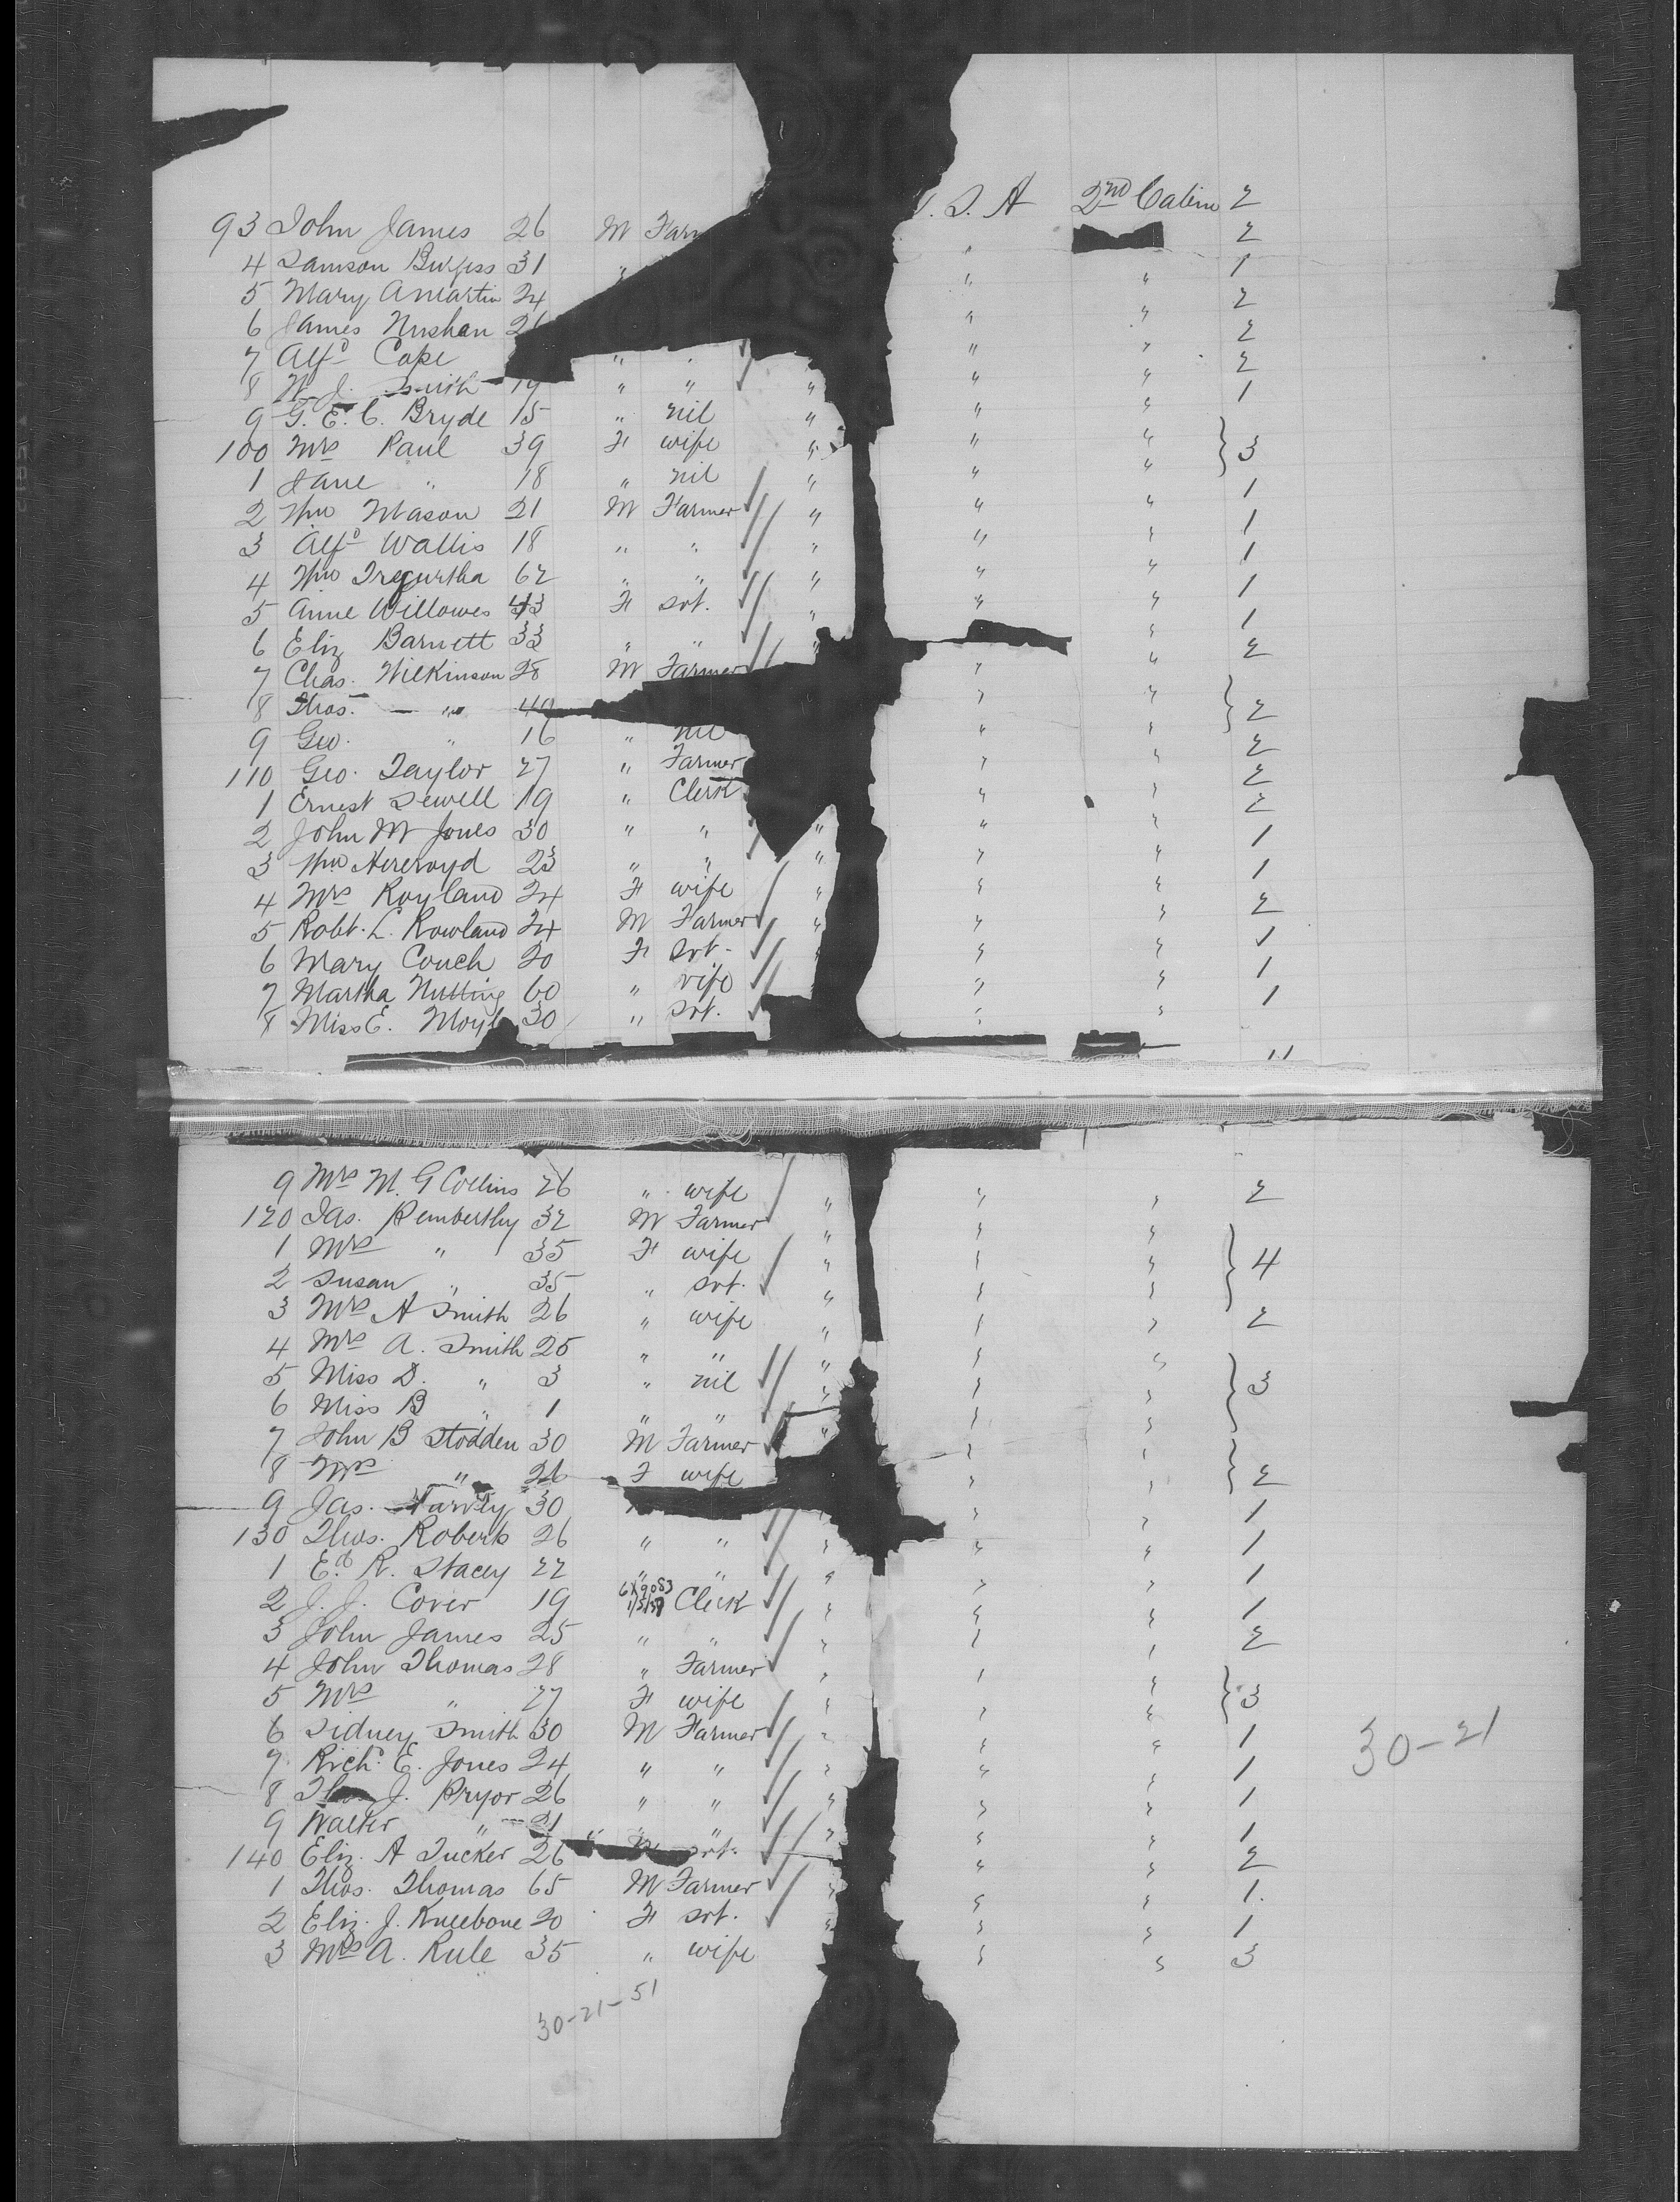 U. S. A 2nd Cabin 2
93 John James 26 M Farm 2
4 Samson Burgess 31 " " 1
5 Mary A Martin 24 " " 2
6 James 26 " " 2
7 Alfd Cope " " " " 2
8 W. J. Smith 19 " " " " " 1
9 G. E. C. Bryde 15 " nil " " "
100 Mrs Paul 39 F wife " " " } 3
1 Jane " 18 " nil " " "
2 Wm Mason 21 M Farmer " " " 1
3 Alfd Wallis 18 " " " " " 1
4 Wm Tregurtha 62 " " " " " 1
5 Anne Willowes 43 F svt. " " " 1
6 Eliz Barnett 33 " " " " 1
7 Chas. Wilkinson 28 M Farmer " " 2
8 Thos. " 40 " "
9 Geo. " 16 " nil " " } 2
110 Geo. Taylor 27 " Farmer " " 2
1 Ernest Sewell 19 " Clerk " " 2
2 John M Jones 30 " " " " " 2
3 Wm Hereroyd 23 " " " " " 1
4 Mrs Royland 24 F wife " " " 1
5 Robt. L. Rowland 24 M Farmer " " " 2
6 Mary Couch 20 F svt. " " " 1
7 Martha Nutting 60 " wife " " 1
8 Miss E. Moyl 30 " svt. " " 1
11
9 Mrs M. G Collins 26 " wife " " " 2
120 Jas. Pemberthy 32 M Farmer " " "
1 Mrs " 35 F wife " " " } 4
2 Susan " 35 " svt. " " "
3 Mrs A Smith 26 " wife " " " 2
4 Mrs A. Smith 25 " " " " "
5 Miss D. " 3 " nil " " " } 3
6 Miss B " 1 " " " "
7 John B Stodden 30 M Farmer " " "
8 Mrs " 26 F wife " " } 2
9 Jas. Harvey 30 " " 1
130 Thos. Roberts 26 " " " " " 1
1 Ed. R. Stacey 22 " " " " " 1
2 J. J. Cover 19 Clerk " " " 1
3 John James 25 " " " " " 2
4 John Thomas 28 " Farmer " " "
5 Mrs " 27 F wife " " " } 3
6 Sidney Smith 30 M Farmer " " " 1
7 Richd. E. Jones 24 " " " " " 1
30-21
8 J. Pryor 26 " " " " " 1
9 Walter " 21 " " " " " 1
140 Eliz. A Tucker 26 svt. " " 2
1 Thos. Thomas 65 M Farmer " " " 1.
2 Eliz. J. Kneebone 20 F svt. " " " 1
3 Mrs A. Rule 35 " wife " " 3
30-21-51